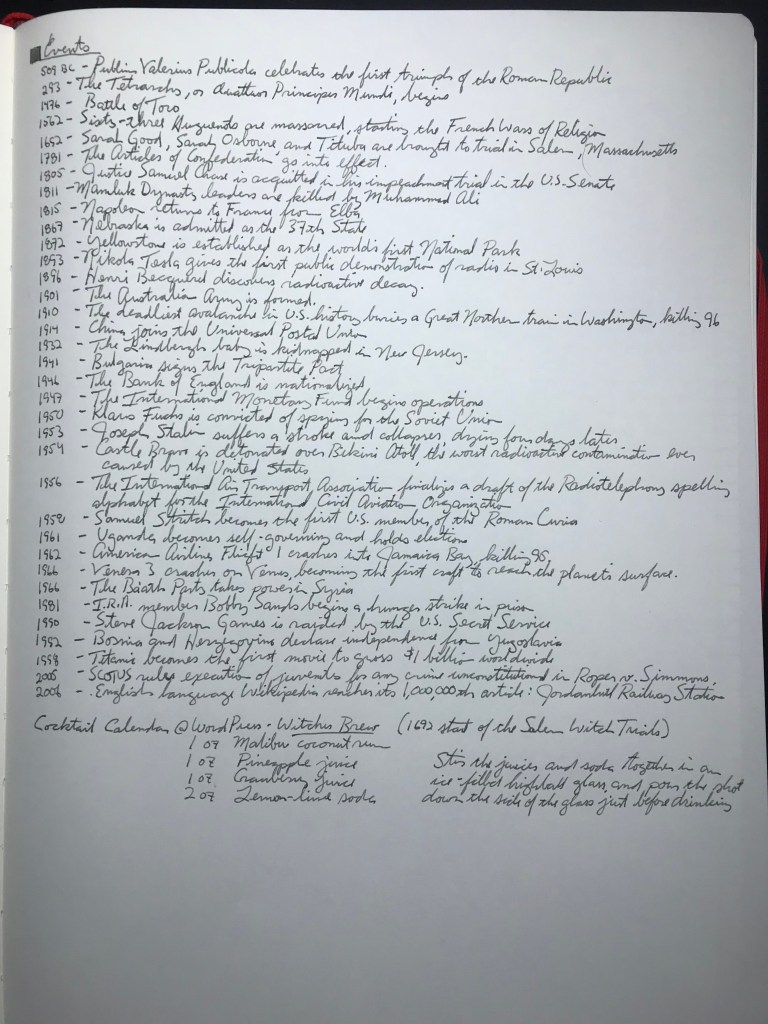 Events
509 BC - Publius Valerius Publicola celebrates the first triumph of the Roman Republic
293 - The Tetrarchs, or Quattuor Principes Mundi, begins
1476 - Battle of Toro
1562 - Sixty-three Huguenots are massacred, starting the French Wars of Religion
1692 - Sarah Good, Sarah Osborne and Tituba are brought to trial in Salem, Massachusetts
1781 - The Articles of Confederation go into effect.
1805 - Justice Samuel Chase is acquitted in his impeachment trial in the U.S. Senate
1811 - Mamluk Dynasty leaders are killed by Muhammed Ali
1815 - Napoleon returns to France from Elba
1867 - Nebraska is admitted as the 37th State
1872 - Yellowstone is established as the world's first National Park
1893 - Nikola Tesla gives the first public demonstration of radio in St. Louis
1896 - Henri Becquerel discovers radioactive decay.
1901 - The Australian Army is formed.
1910 - The deadliest avalanche in U.S. history buries a Great Northern train in Washington, killing 96
1914 - China joins the Universal Postal Union
1932 - The Lindbergh baby is kidnapped in New Jersey.
1941 - Bulgaria signs the Tripartite Pact
1946 - The Bank of England is nationalized
1947 - The International Monetary Fund begins operations
1950 - Klaus Fuchs is convicted of spying for the Soviet Union
1953 - Joseph Stalin suffers a stroke and collapses, dying four days later
1954 - Castle Bravo is detonated over Bikini Atoll, the worst radioactive contamination ever
caused by the United States
1956 - The International Air Transport Association finalizes a draft of the Radiotelephony spelling
alphabet for the International Civil Aviation Organization
1958 - Samuel Stritch becomes the first U.S. member of the Roman Curia
1961 - Uganda becomes self-governing and holds elections
1962 - American Airlines Flight 1 crashes into Jamaica Bay, killing 95.
1966 - Venera 3 crashes on Venus, becoming the first craft to reach the planet's surface.
1966 - The Ba'ath Party takes power in Syria
1981 - I.R.A. member Bobby Sands begins a hunger strike in prison
1990 - Steve Jackson Games is raided by the U.S. Secret Service
1992 - Bosnia and Herzegovina declare independence from Yugoslavia
1998 - Titanic becomes the first movie to gross $1 billion worldwide
2005 - SCOTUS rules execution of juveniles for any crime unconstitutional in Roper v. Simmons.
2006 - English language Wikipedia reaches its 1,000,000th article: Jordanhill Railway Station
Cocktail Calendar @ WordPress - Witches Brew (1692 start of the Salem Witch Trials)
1 oz Malibu coconut rum
1 oz Pineapple juice
1 oz Cranberry juice
2 oz Lemon-lime soda
Stir the juices and soda together in an
ice-filled highball glass, and pour the shot
down the side of the glass just before drinking